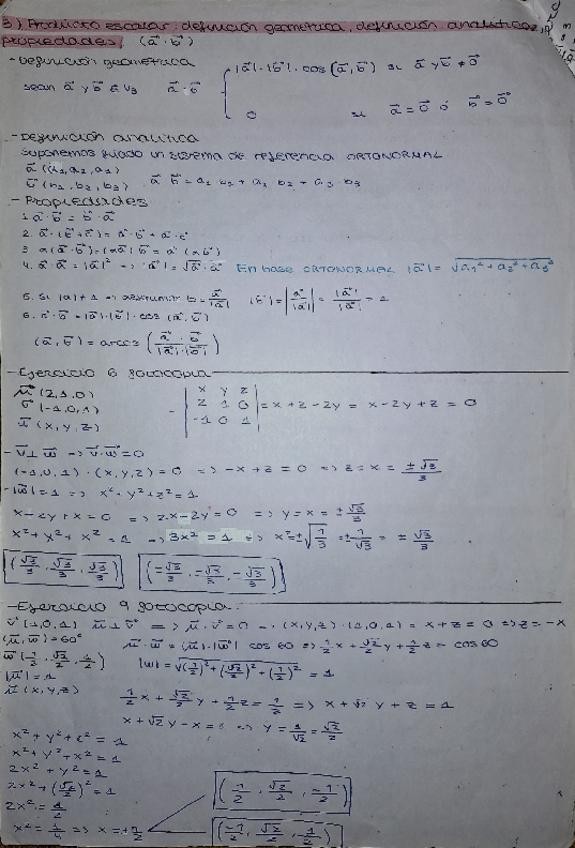 3) Producto escalar: definición geométrica, definición analítica,
propiedades. (a⃗ · b⃗)
- Definición geométrica
sean a⃗ y b⃗ ∈ V3   a⃗ · b⃗ { |a⃗|·|b⃗|·cos (a⃗, b⃗) si a⃗ y b⃗ ≠ 0⃗
0 si a⃗ = 0⃗ ó b⃗ = 0⃗
- Definición analítica
suponemos fijado un sistema de referencia ORTONORMAL
a⃗ (a1, a2, a3)
b⃗ (b1, b2, b3)   a⃗ · b⃗ = a1 · b1 + a2 · b2 + a3 · b3
- Propiedades
1. a⃗ · b⃗ = b⃗ · a⃗
2. a⃗ · (b⃗ + c⃗) = a⃗ · b⃗ + a⃗ · c⃗
3. α(a⃗ · b⃗) = (αa⃗) b⃗ = a⃗ (αb⃗)
4. a⃗ · a⃗ = |a⃗|² => |a⃗| = √a⃗ · a⃗   En base ORTONORMAL |a⃗| = √a1² + a2² + a3²
5. Si |a| ≠ 1 => b = a⃗/|a⃗|   |b⃗| = |a⃗/|a⃗|| = |a⃗|/|a⃗| = 1
6. a⃗ · b⃗ = |a⃗| · |b⃗| · cos (a⃗, b⃗)
(a⃗, b⃗) = arcos (a⃗ · b⃗ / |a⃗| · |b⃗|)
- Ejercicio 6 fotocopia
u⃗ (2, 1, 0)
v⃗ (-1, 0, 1)
w⃗ (x, y, z)
| x y z |
| 2 1 0 | = x + z - 2y = x - 2y + z = 0
| -1 0 1 |
- v⃗ ⊥ w⃗ => v⃗ · w⃗ = 0
(-1, 0, 1) · (x, y, z) = 0 => -x + z = 0 => z = x = ±√3/3
- |w⃗| = 1 => x² + y² + z² = 1
x - 2y + x = 0 => 2x - 2y = 0 => y = x = ±√3/3
x² + y² + x² = 1 => 3x² = 1 => x² = ±√1/3 = ±1/√3 = ±√3/3
(√3/3, √3/3, √3/3)   (-√3/3, -√3/3, -√3/3)
- Ejercicio 9 fotocopia
v⃗ (1, 0, 1)   u⃗ ⊥ v⃗ => u⃗ · v⃗ = 0 => (x, y, z) · (1, 0, 1) = x + z = 0 => z = -x
(u⃗, w⃗) = 60°   u⃗ · w⃗ = |u⃗| · |w⃗| cos 60 => 1/2 x + √2/2 y + 1/2 z = cos 60
w⃗ (1/2, √2/2, 1/2)   |w| = √(1/2)² + (√2/2)² + (1/2)² = 1
|u⃗| = 1
u⃗ (x, y, z)   1/2 x + √2/2 y + 1/2 z = 1/2 => x + √2 y + z = 1
x + √2 y - x = 1 => y = 1/√2 = √2/2
x² + y² + z² = 1
x² + y² + x² = 1
2x² + y² = 1
2x² + (√2/2)² = 1
2x² = 1/2
x² = 1/4 => x = ±1/2
(1/2, √2/2, -1/2)
(-1/2, √2/2, 1/2)